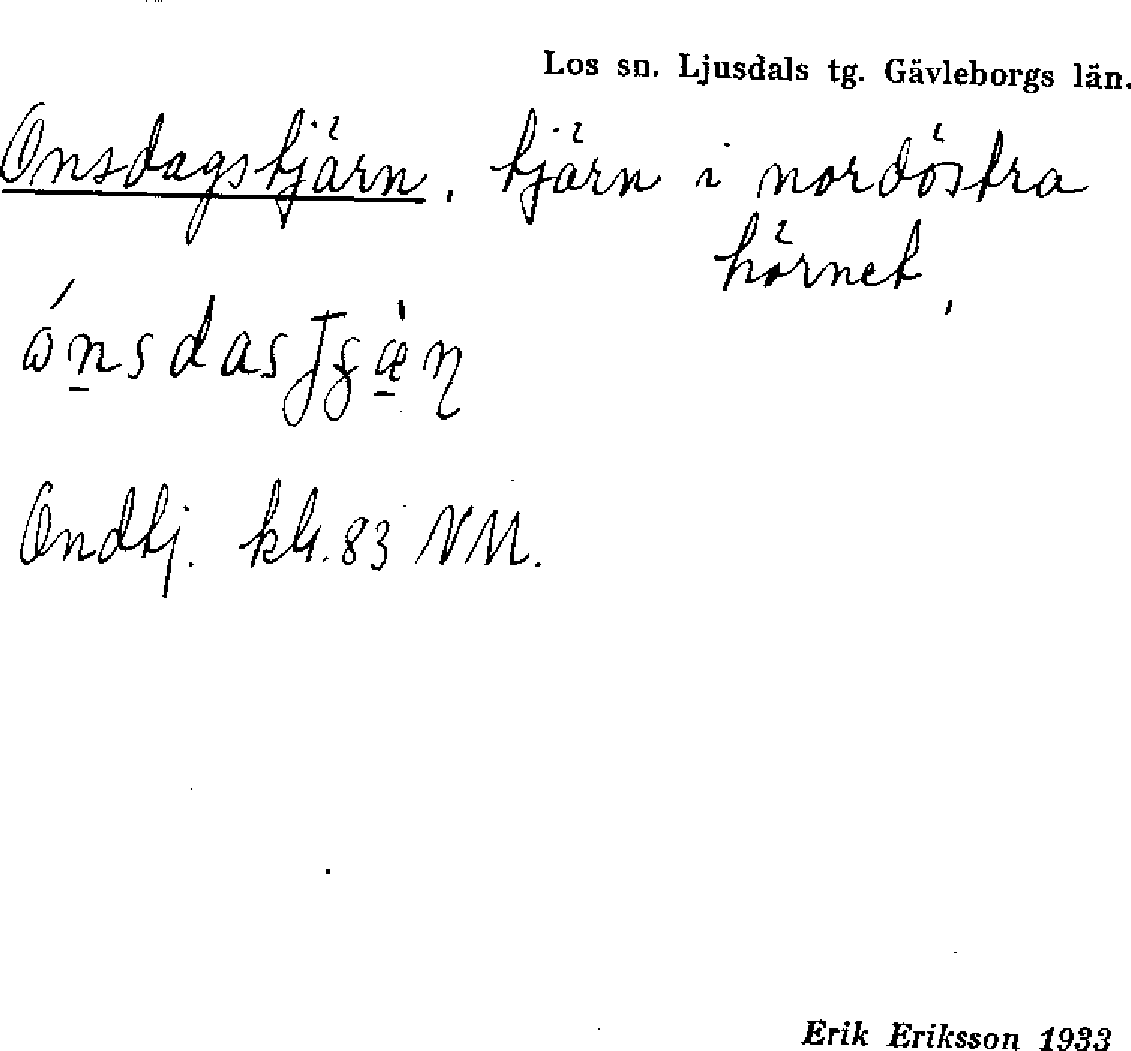 Los sn. Ljusdals tg. Gävleborgs län.
Onsdagstjärn. tjärn i nordöstra
hörnet.
Ondtj. ktr. 83 NM.
Erik Eriksson 1933